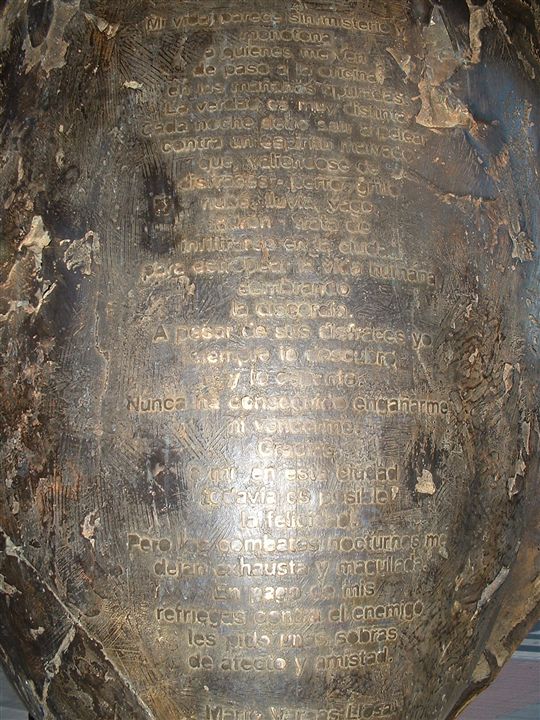 Mi vida parece sin misterio y
monótona
a quienes me ven
de paso a la oficina
en las mañanas apuradas.
La verdad es muy distinta.
Cada noche debo salir a pelear
contra un espíritu malvado
que, valiéndose de
disfraces - perro, grillo,
nube, lluvia, vago,
ladrón - trata de
infiltrarse en la ciudad
para estropear la vida humana
sembrando
la discordia.
A pesar de sus disfraces yo
siempre lo descubro
y lo espanto.
Nunca ha conseguido engañarme
ni vencerme.
Gracias
a mí, en esta ciudad
todavía es posible
la felicidad.
Pero los combates nocturnos me
dejan exhausta y maculada.
En pago de mis
refriegas contra el enemigo,
les pido unas sobras
de afecto y amistad.
Mario Vargas Llosa